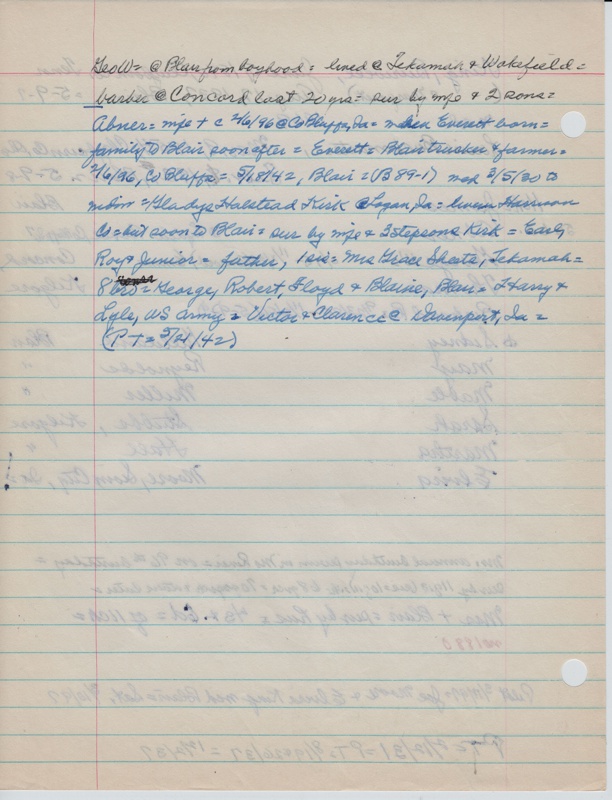 Geo W = @ Blair from boyhood = lived @ Tekamah & Wakefield =
barber @ Concord last 20 yrs = sur by wife & 2 sons =
Abner = wife + c 2/6/96 @ Co Bluffs, Ia = when Everett born =
family to Blair soon after = Everett = Blair trucker & farmer =
2/6/96, Co Bluffs = 5/18/42, Blair = (B 89-1) mcd 3/5/30 to
Gladys Halstead Kirk @ Logan, Ia = lives Harrison
Co = but soon to Blair = sur by wife & 3 stepsons Kirk = Earl,
Roy & Junior = father, 1 sis = Mrs Grace Sheets, Tekamah =
8 bro = George, Robert, Floyd & Blaine, Blair = Harry &
Lyle, US Army = Victor & Clarence @ Davenport, Ia =
(PT = 5/21/42)